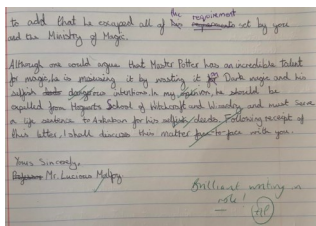 the requirement
to add that he escaped all of set by you
and the Ministry of Magic.
Although one would argue that Master Potter has an incredible talent
for magic, he is misusing it by wasting it Dark magic and his
selfish dangerous intentions. In my opinion, he should be
expelled from Hogwarts School of Witchcraft and Wizardry and must serve
a life sentence to Azkaban for his selfish deeds. Following receipt of
this letter, I shall discuss this matter face-to-face with you.
Yours Sincerely,
Mr. Lucious Malfoy
Brilliant writing in
role!